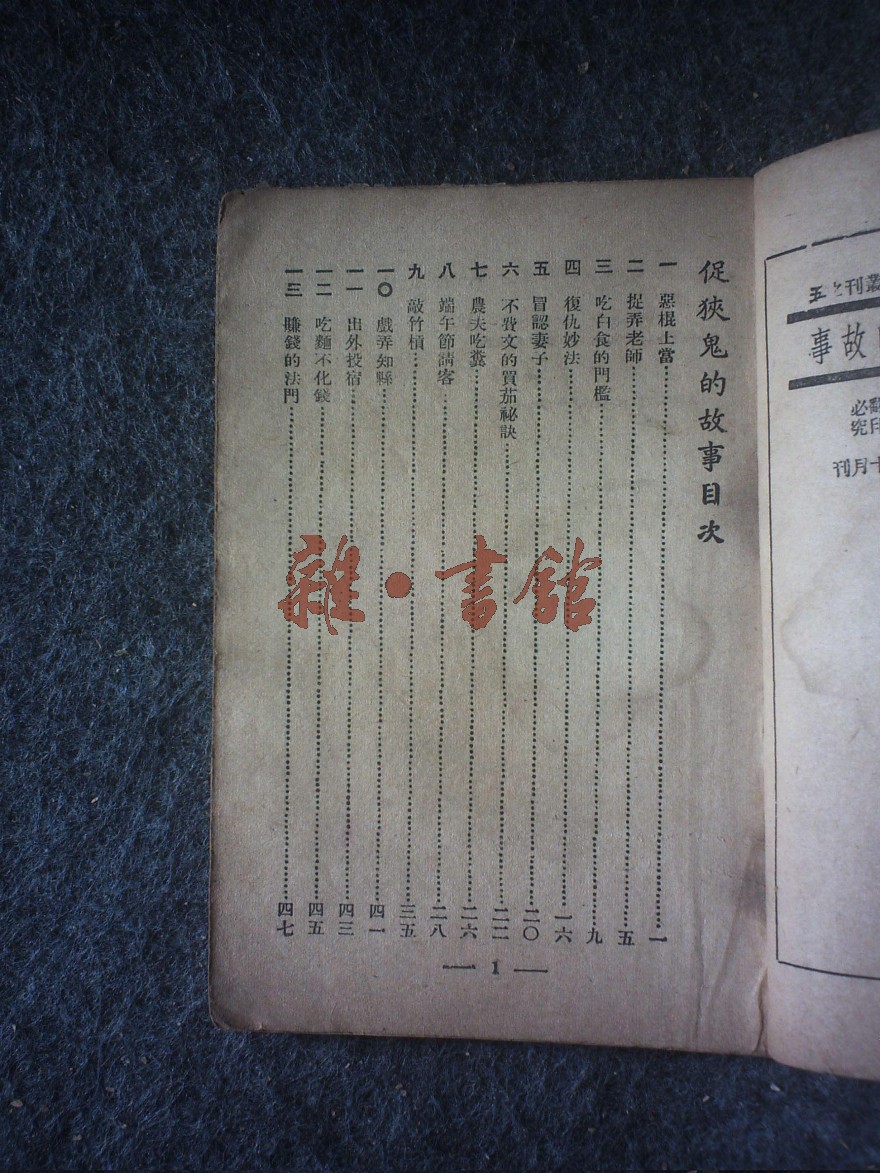 促狹鬼的故事目次
一 惡棍上當…………一
二 捉弄老師…………五
三 吃白食的門檻…………九
四 復仇妙法…………一六
五 冒認妻子…………二〇
六 不費文的買茄祕訣…………二二
七 農夫吃糞…………二六
八 端午節請客…………二八
九 敲竹槓…………三五
一〇 戲弄知縣…………四一
一一 出外投宿…………四三
一二 吃麵不化錢…………四五
一三 賺錢的法門…………四七
— 1 —
雜·書館
叢刊之五
故事
必究
十月刊